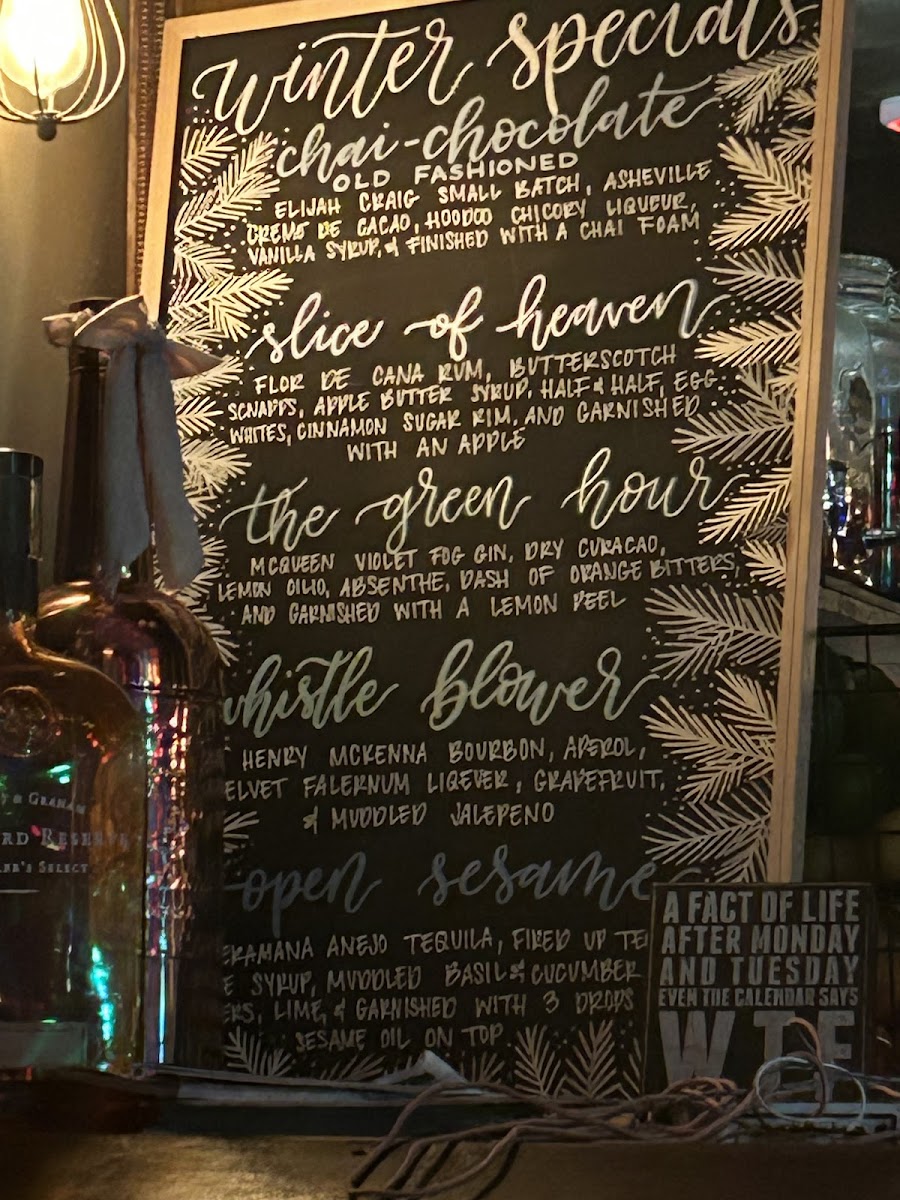 winter specials
chai-chocolate
OLD FASHIONED
ELIJAH CRAIG SMALL BATCH, ASHEVILLE
CREME DE CACAO, HOODOO CHICORY LIQUEUR,
VANILLA SYRUP, & FINISHED WITH A CHAI FOAM
slice of heaven
FLOR DE CANA RUM, BUTTERSCOTCH
SCNAPPS, APPLE BUTTER SYRUP, HALF & HALF, EGG
WHITES, CINNAMON SUGAR RIM, AND GARNISHED
WITH AN APPLE
the green hour
MCQUEEN VIOLET FOG GIN, DRY CURACAO,
LEMON OILIO, ABSENTHE, DASH OF ORANGE BITTERS,
AND GARNISHED WITH A LEMON PEEL
whistle blower
HENRY MCKENNA BOURBON, APEROL,
ELVET FALERNUM LIQEUER, GRAPEFRUIT,
& MUDDLED JALEPENO
open sesame
ERAMANA ANEJO TEQUILA, FIRED UP TE
E SYRUP, MUDDLED BASIL & CUCUMBER
ERS, LIME, & GARNISHED WITH 3 DROPS
SESAME OIL ON TOP
& GRAHAM
RD RESERVE
ER'S SELECT
A FACT OF LIFE
AFTER MONDAY
AND TUESDAY
EVEN THE CALENDAR SAYS
W T F